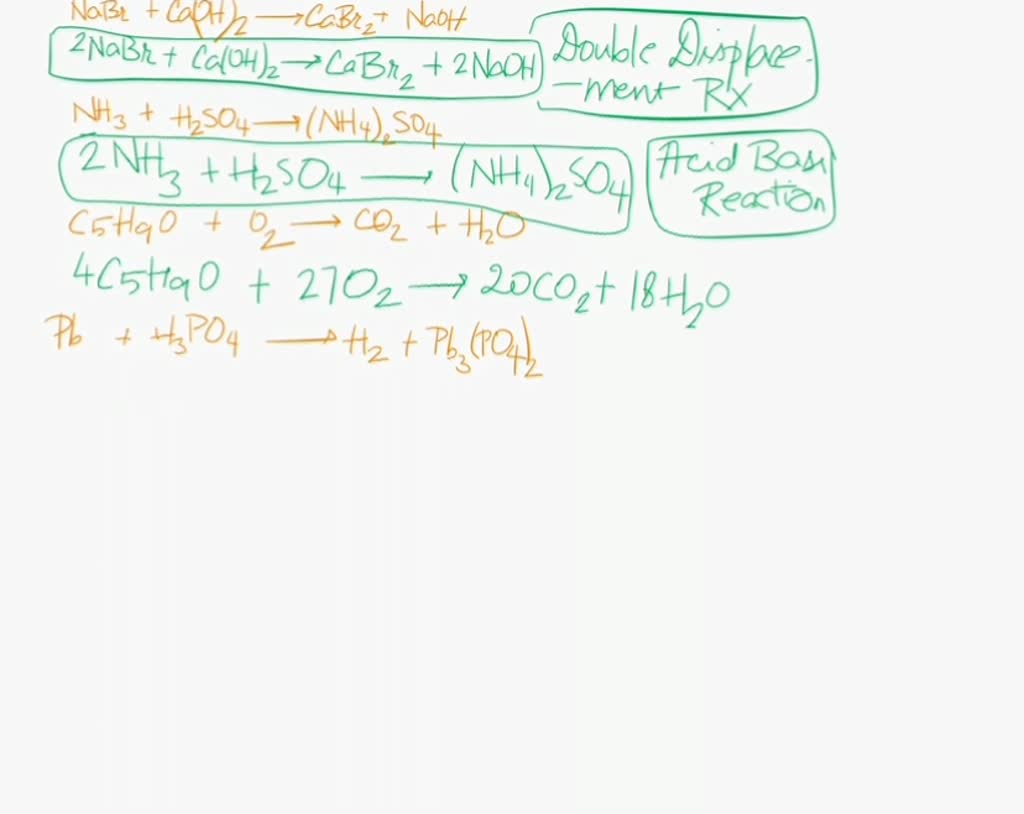 NaBr + Ca(OH)₂ → CaBr₂ + NaOH
2NaBr + Ca(OH)₂ → CaBr₂ + 2NaOH
Double Displace-
-ment Rx
NH₃ + H₂SO₄ → (NH₄)₂SO₄
2NH₃ + H₂SO₄ → (NH₄)₂SO₄
Acid Base
Reaction
C₅H₉O + O₂ → CO₂ + H₂O
4C₅H₉O + 27O₂ → 20CO₂ + 18H₂O
Pb + H₃PO₄ → H₂ + Pb₃(PO₄)₂